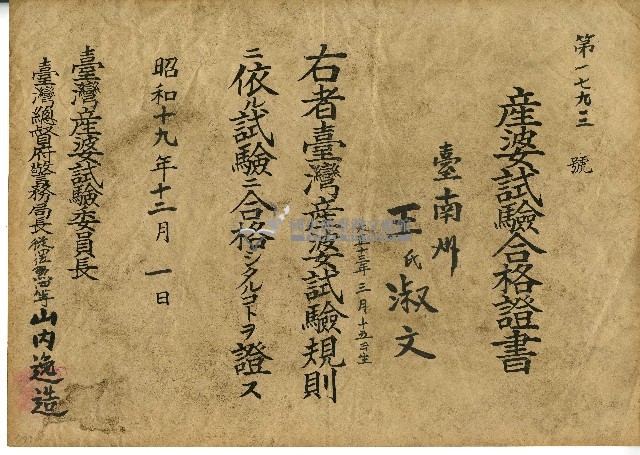 第一七九三號
産婆試驗合格證書
臺南州
王氏淑文
三年三月十五日生
右者臺灣産婆試驗規則
ニ依ル試驗ニ合格シタルコトヲ證ス
昭和十九年十二月一日
臺灣産婆試驗委員長
臺灣總督府警務局長從四位勳四等山內逸造